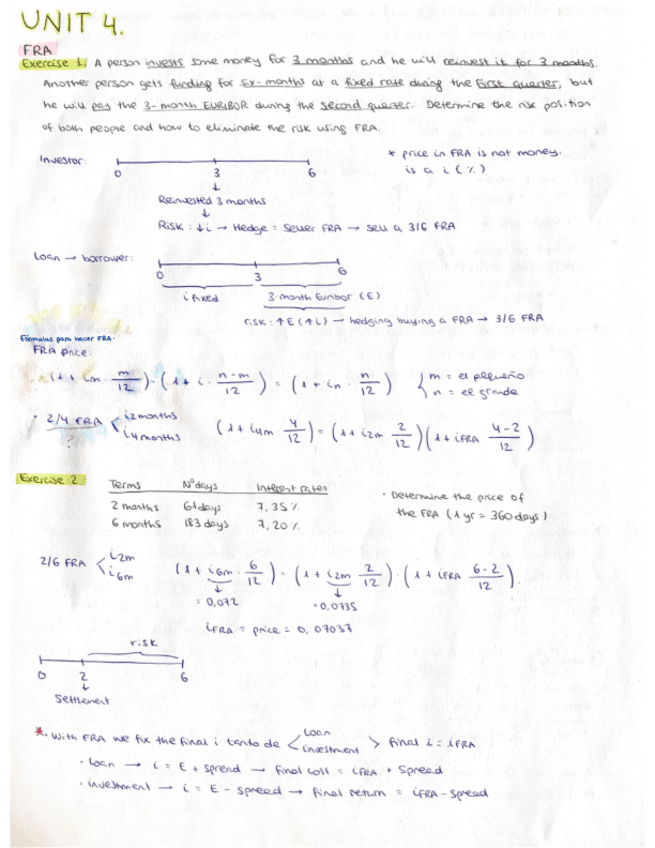 UNIT 4.
FRA
Exercise 1. A person invests some money for 3 months and he will reinvest it for 3 months.
Another person gets funding for six-months at a fixed rate during the first quarter, but
he will pay the 3-month EURIBOR during the second quarter. Determine the risk position
of both people and how to eliminate the risk using FRA.
Investor:
0 3 6
* price in FRA is not money.
is a i (%)
Reinvested 3 months
Risk: ↓i → Hedge = Seller FRA → sell a 3/6 FRA
Loan → borrower:
0 3 6
i fixed 3-month Euribor (E)
risk: ↑E (↑i) → hedging buying a FRA → 3/6 FRA
Fórmulas para hacer FRA.
FRA price:
(1 + im · m/12) · (1 + i · n-m/12) = (1 + in · n/12) { m = el pequeño
n = el grande
· 2/4 FRA < i2months
i4months
?
(1 + i4m 4/12) = (1 + i2m 2/12) (1 + iFRA 4-2/12)
Exercise 2.
Terms Nºdays Interest rates
2 months 61 days 7,35%
6 months 183 days 7,20%
· Determine the price of
the FRA (1 yr = 360 days)
2/6 FRA < i2m
i6m
(1 + i6m · 6/12) = (1 + i2m 2/12) · (1 + iFRA 6-2/12).
= 0,072 = 0,0735
iFRA = price = 0,07037
risk
0 2 6
Settlement
*. With FRA we fix the final i tanto de < loan
investment > final i = iFRA
· loan → i = E + spread → final cost = iFRA + spread
· investment → i = E - spread → final return = iFRA - spread